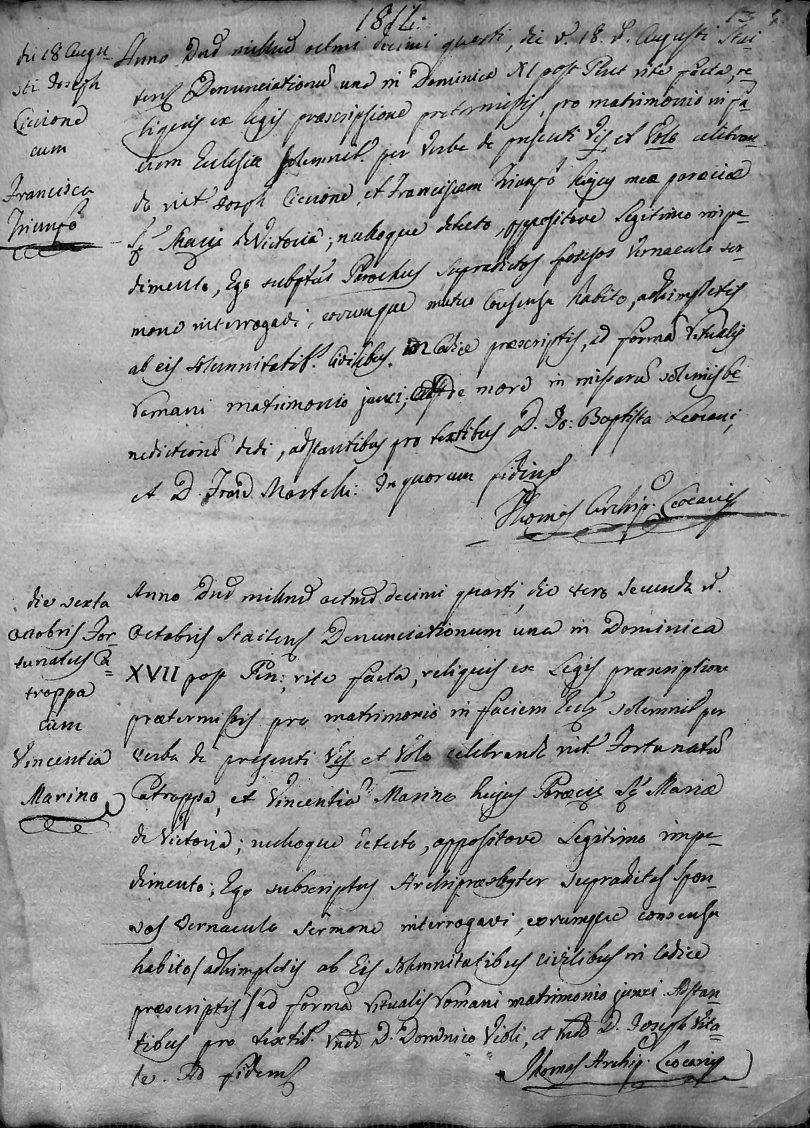 1814.
die 18 Augu-
sti Joseph
Ciccione
cum
Francisca
Triunfo
Anno Dnd millmo octmo decimi quarti, die v. 18. v. Augusti
Denunciationum una in Dominica XI post Pent rite facta, re-
liquis ex legis præscriptione pretermissis, pro matrimonio in fa-
ciem Eclesia solemnit. per verba de presenti Vis et Volo celebran-
do int. Joseph Ciccione, et Franciscam Triunfo hujus meæ parœciæ
Sæ Mariæ de Victoria; nulloque detecto, oppositove legitimo impe-
dimento, Ego subptus Parochus supradictos sponsos vernaculo ser-
mone interrogavi, eorumque mutuo consensu habito, adhimpletis
ab eis solemnitatib. civilibus in Codice præscriptis, ad formã ritualis
romani matrimonio junxi, de more in missarũ solemis be-
nedictionẽ dedi, adstantibus pro testibus D. Jo: Baptista
et D. Martelli. In quorum fidem
Thomas Archip. Leocaris
die sexta
Octobris For-
tunatus Ca-
troppa
cum
Vincentia
Marino
Anno Dnd millmo octmo decimi quarti, die vero secunda v.
Octobris Denunciationum una in Dominica
XVII post Pen:, rite facta, reliquis ex Legis præscriptione
prætermissis pro matrimonio in faciem Eccl. solemnit. per
verba de presenti Vis et Volo celebrando int. Fortunatũ
Catroppa, et Vincentiã Marino hujus Parœciæ Sæ Mariæ
de Victoria; nulloque detecto, oppositove Legitimo impe-
dimento; Ego subscriptus Archipræsbyter supradictos spon-
sos vernaculo sermone interrogavi, eorumque consensu
habito, adhimpletis ab Eis solemnitatibus civilibus in Codice
præscriptis, ad formã ritualis romani matrimonio junxi Adstan-
tibus pro testib. D. Dominico Violi, et D. Joseph Vita-
le. Ad fidem
Thomas Archip. Leocaris